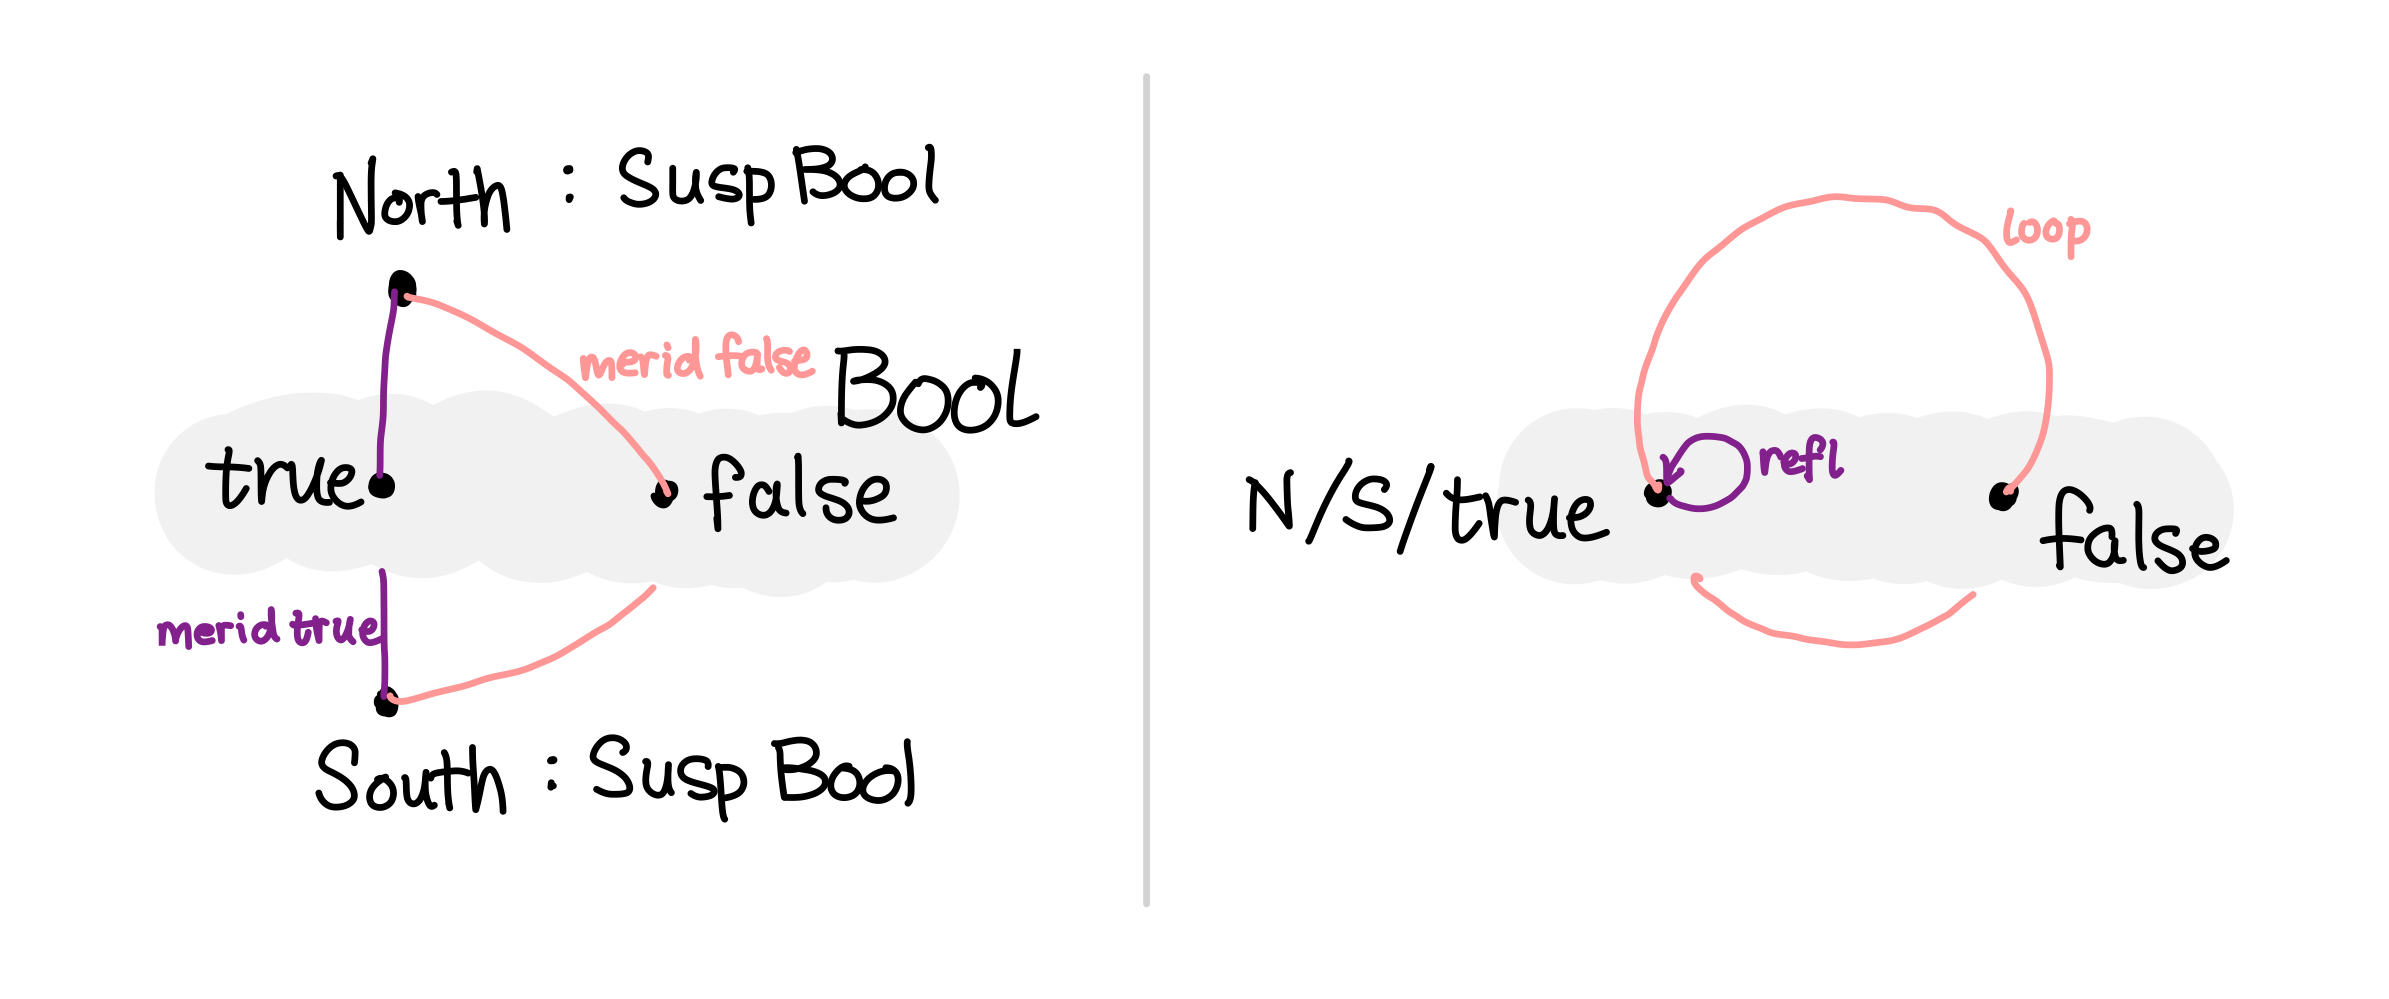 North : Susp Bool
merid false
Bool
true
false
merid true
South : Susp Bool
loop
refl
N/S/true
false